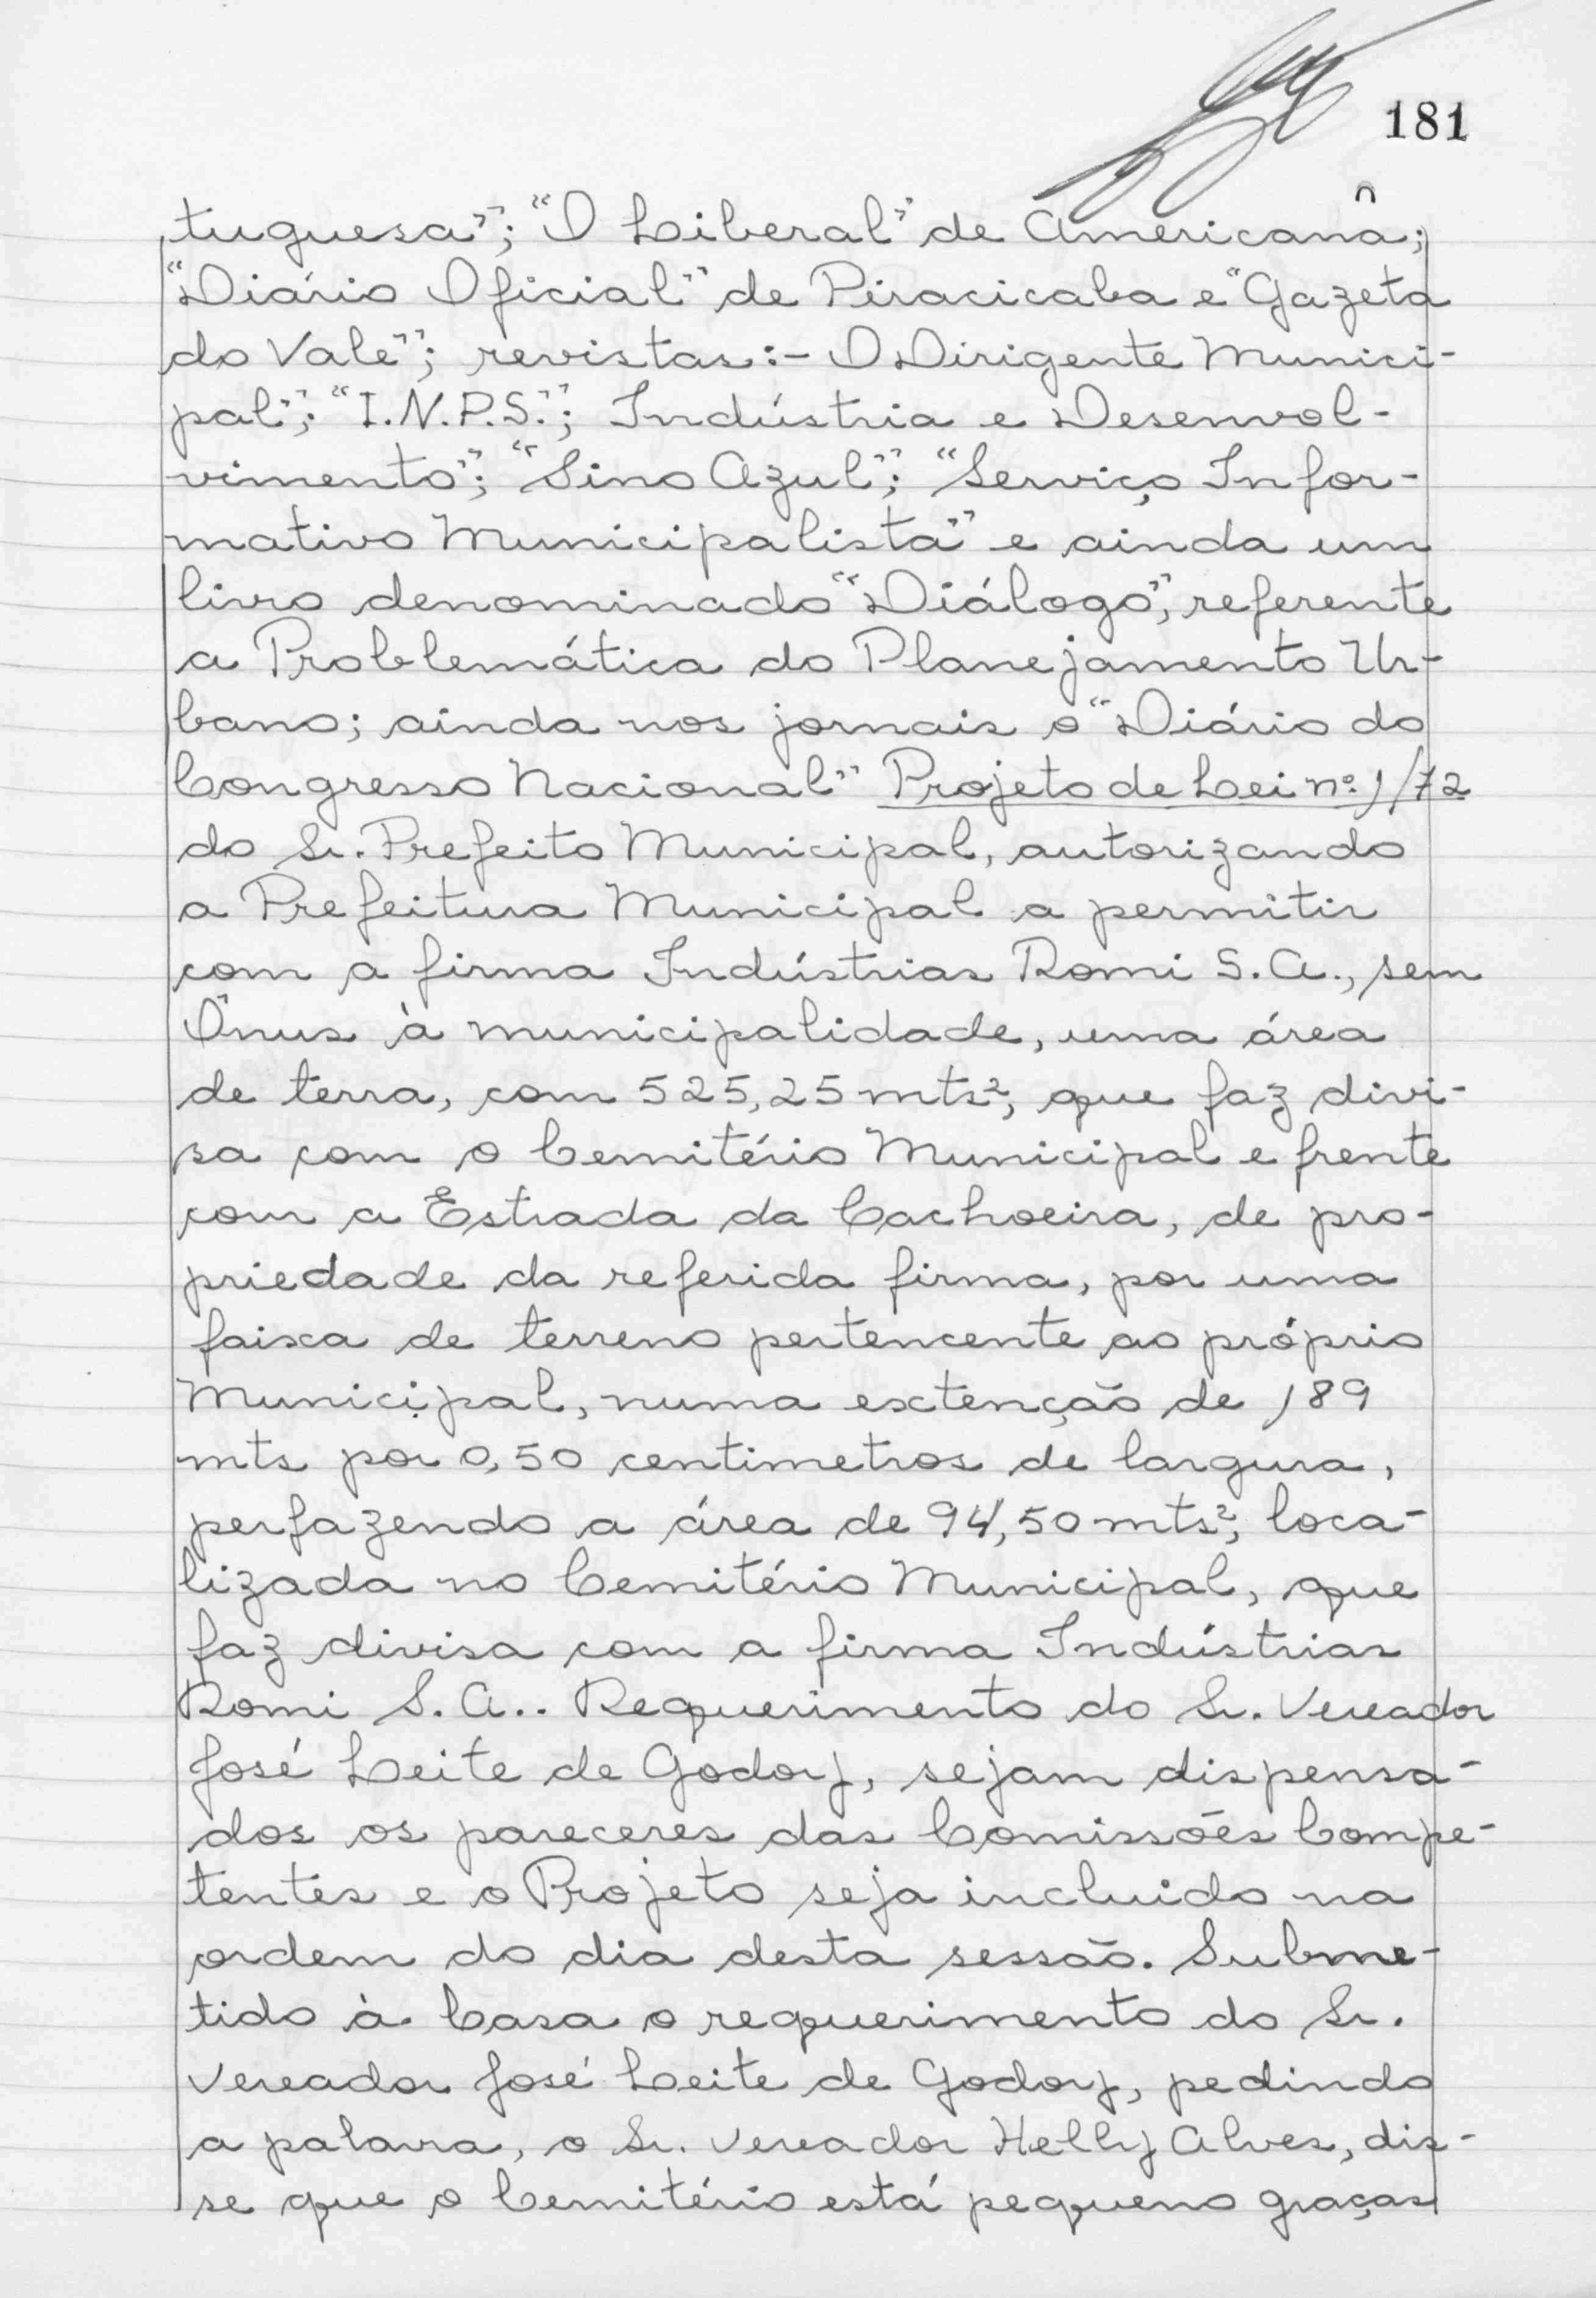 181
tuguesa"; "O Liberal" de Americana;
"Diário Oficial" de Piracicaba e "Gazeta
do Vale"; revistas:- O Dirigente Munici-
pal"; "I.N.P.S."; Indústria e Desenvol-
vimento"; "Sino Azul"; "Serviço Infor-
mativo Municipalista" e ainda um
livro denominado "Diálogo", referente
a Problemática do Planejamento Ur-
bano; ainda nos jornais o "Diário do
Congresso Nacional" Projeto de Lei nº 1/72
do Sr. Prefeito Municipal, autorizando
a Prefeitura Municipal a permitir
com a firma Indústrias Romi S.A., sem
Ônus à municipalidade, uma área
de terra, com 525,25 mts², que faz divi-
sa com o Cemitério Municipal e frente
com a Estrada da Cachoeira, de pro-
priedade da referida firma, por uma
faixa de terreno pertencente ao próprio
Municipal, numa extenção de 189
mts por 0,50 centimetros de largura,
perfazendo a área de 94,50 mts², loca-
lizada no Cemitério Municipal, que
faz divisa com a firma Indústrias
Romi S.A.. Requerimento do Sr. Vereador
José Leite de Godoy, sejam dispensa-
dos os pareceres das Comissões Compe-
tentes e o Projeto seja incluido na
ordem do dia desta sessão. Subme-
tido à Casa o requerimento do Sr.
Vereador José Leite de Godoy, pedindo
a palavra, o Sr. Vereador Helly Alves, dis-
se que o Cemitério está pequeno graças